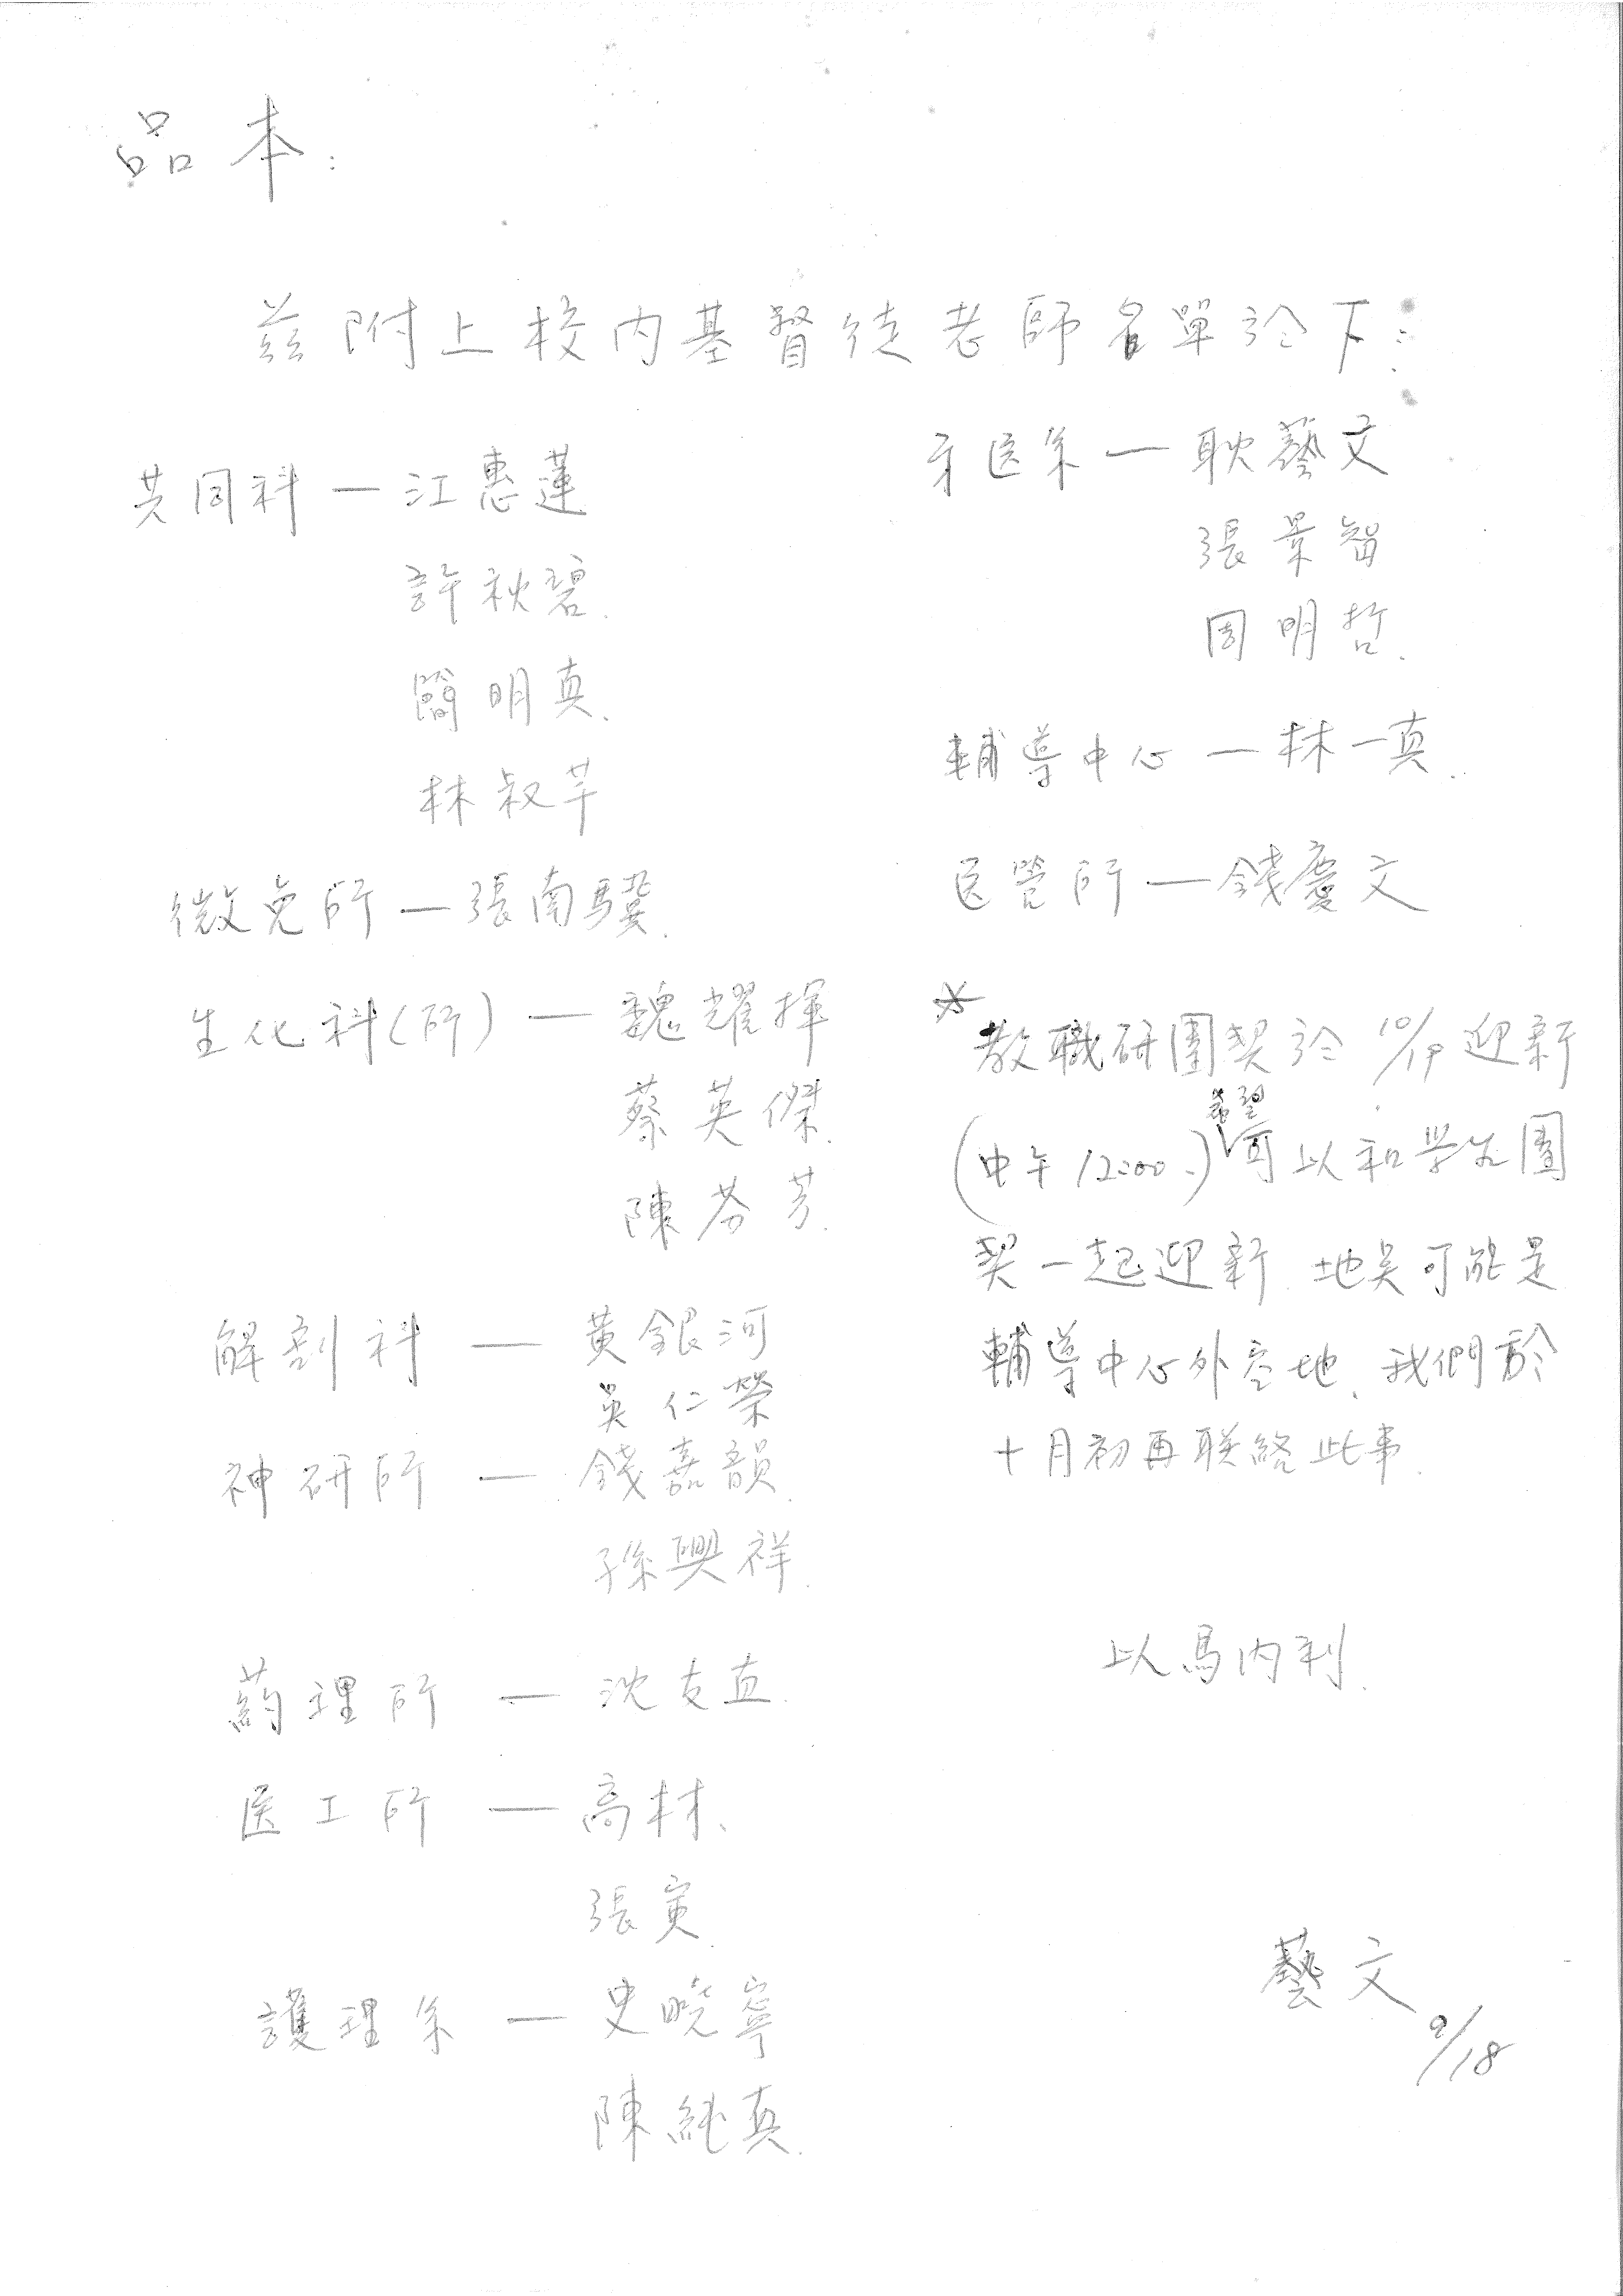 品本：
茲附上校內基督徒老師名單於下：
共同科—江惠蓮
許秋碧.
簡明真.
林淑芊
微免所—張南驥.
生化科(所)—魏耀揮
蔡英傑.
陳芬芳.
解剖科—黃銀河
吳仁榮
神研所—錢嘉韻.
孫興祥.
葯理所—沈友直.
医工所—高材、
張寅.
護理系—史曉寧
陳純真.
牙医系—耿藝文
張景智
周明哲.
輔導中心—林一真.
医管所—錢慶文
*教職研團契於 10/19 迎新
(中午12:00.)希望可以和学生團
契一起迎新.地点可能是
輔導中心外空地、我們於
十月初再联絡此事.
以馬內利.
藝文 9/18